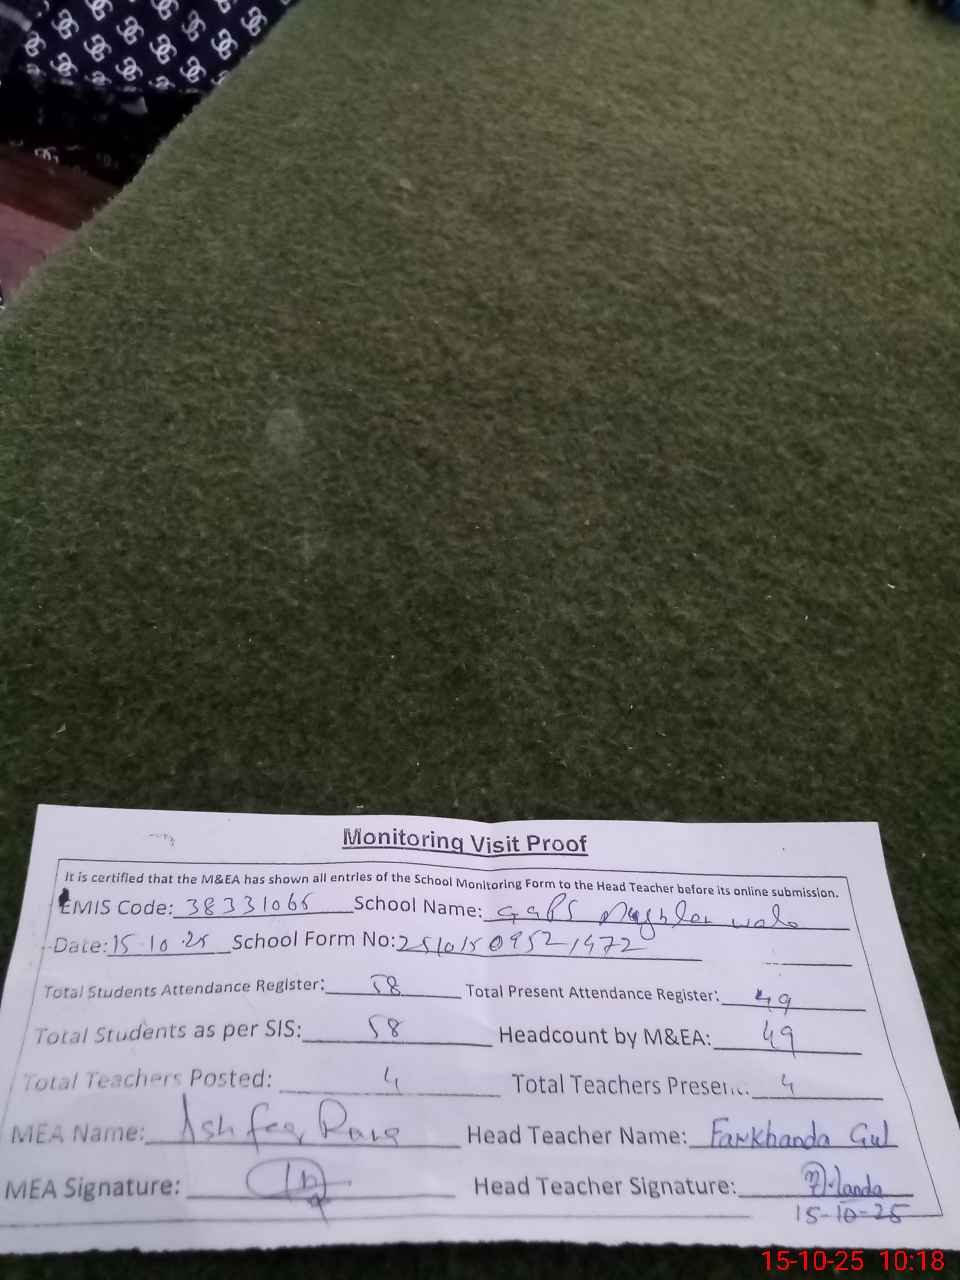 Monitoring Visit Proof
It is certified that the M&EA has shown all entries of the School Monitoring Form to the Head Teacher before its online submission.
EMIS Code: 38331065 School Name: GGPS wala
Date: 15-10-25 School Form No: 25101509521972
Total Students Attendance Register: 58 Total Present Attendance Register: 49
Total Students as per SIS: 58 Headcount by M&EA: 49
Total Teachers Posted: 4 Total Teachers Present: 4
MEA Name: Head Teacher Name: Farkhanda Gul
MEA Signature: Head Teacher Signature:
15-10-25
15-10-25 10:18